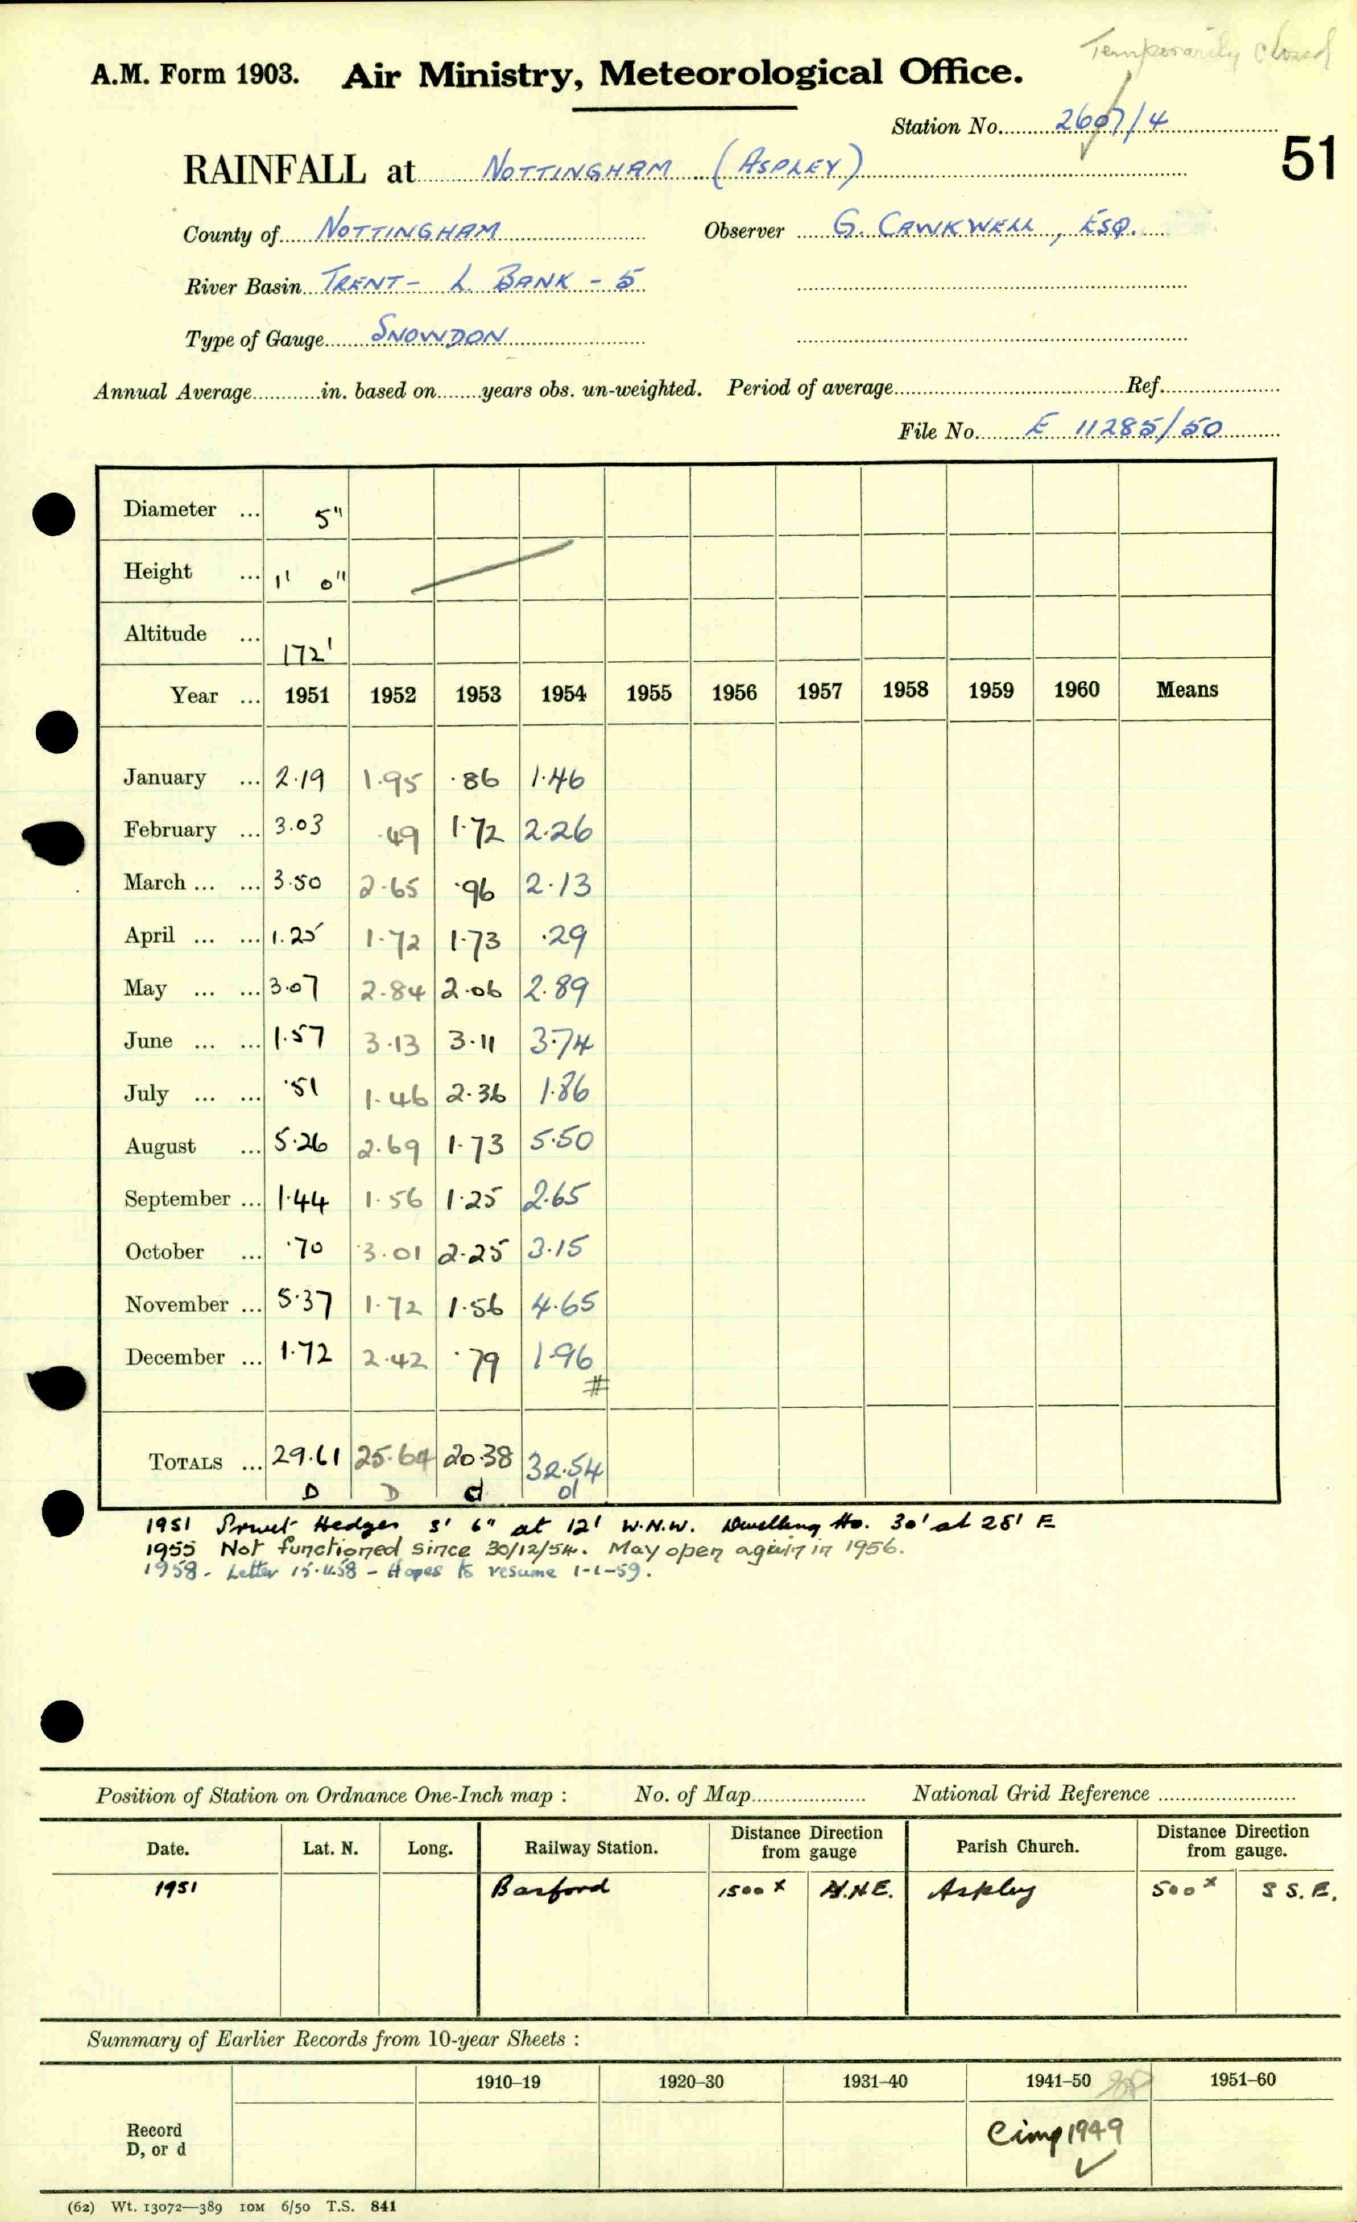 Temporarily closed
A.M. Form 1903. Air Ministry, Meteorological Office.
Station No. 2607/4
51
RAINFALL at NOTTINGHAM (ASPLEY)
County of NOTTINGHAM Observer G. CAWKWELL, ESQ.
River Basin TRENT - L. BANK - 5
Type of Gauge SNOWDON
Annual Average in. based on years obs. un-weighted. Period of average Ref.
File No. E 11285/50
Diameter ... 5"
Height ... 1' 0"
Altitude ... 172'
Year ... 1951 1952 1953 1954 1955 1956 1957 1958 1959 1960 Means
January ... 2.19 1.95 .86 1.46
February ... 3.03 .49 1.72 2.26
March ... ... 3.50 2.65 .96 2.13
April ... ... 1.25 1.72 1.73 .29
May ... ... 3.07 2.84 2.06 2.89
June ... ... 1.57 3.13 3.11 3.74
July ... ... .51 1.46 2.36 1.86
August ... 5.26 2.69 1.73 5.50
September ... 1.44 1.56 1.25 2.65
October ... .70 3.01 2.25 3.15
November ... 5.37 1.72 1.56 4.65
December ... 1.72 2.42 .79 1.96
#
TOTALS ... 29.61 25.64 20.38 32.54
D D d d
1951 Privet Hedges 3' 6" at 12' W.N.W. Dwelling Ho. 30' at 28' E
1955 Not functioned since 30/12/54. May open again in 1956.
1958 - Letter 15.11.58 - Hopes to resume 1-1-59.
Position of Station on Ordnance One-Inch map : No. of Map National Grid Reference
Date. Lat. N. Long. Railway Station. Distance from gauge Direction Parish Church. Distance from gauge. Direction
1951 Basford 1500 x N.N.E. Aspley 500 x S S. E.
Summary of Earlier Records from 10-year Sheets :
1910–19 1920–30 1931–40 1941–50 1951–60
Record
D, or d
1949
(62) Wt. 13072—389 10M 6/50 T.S. 841